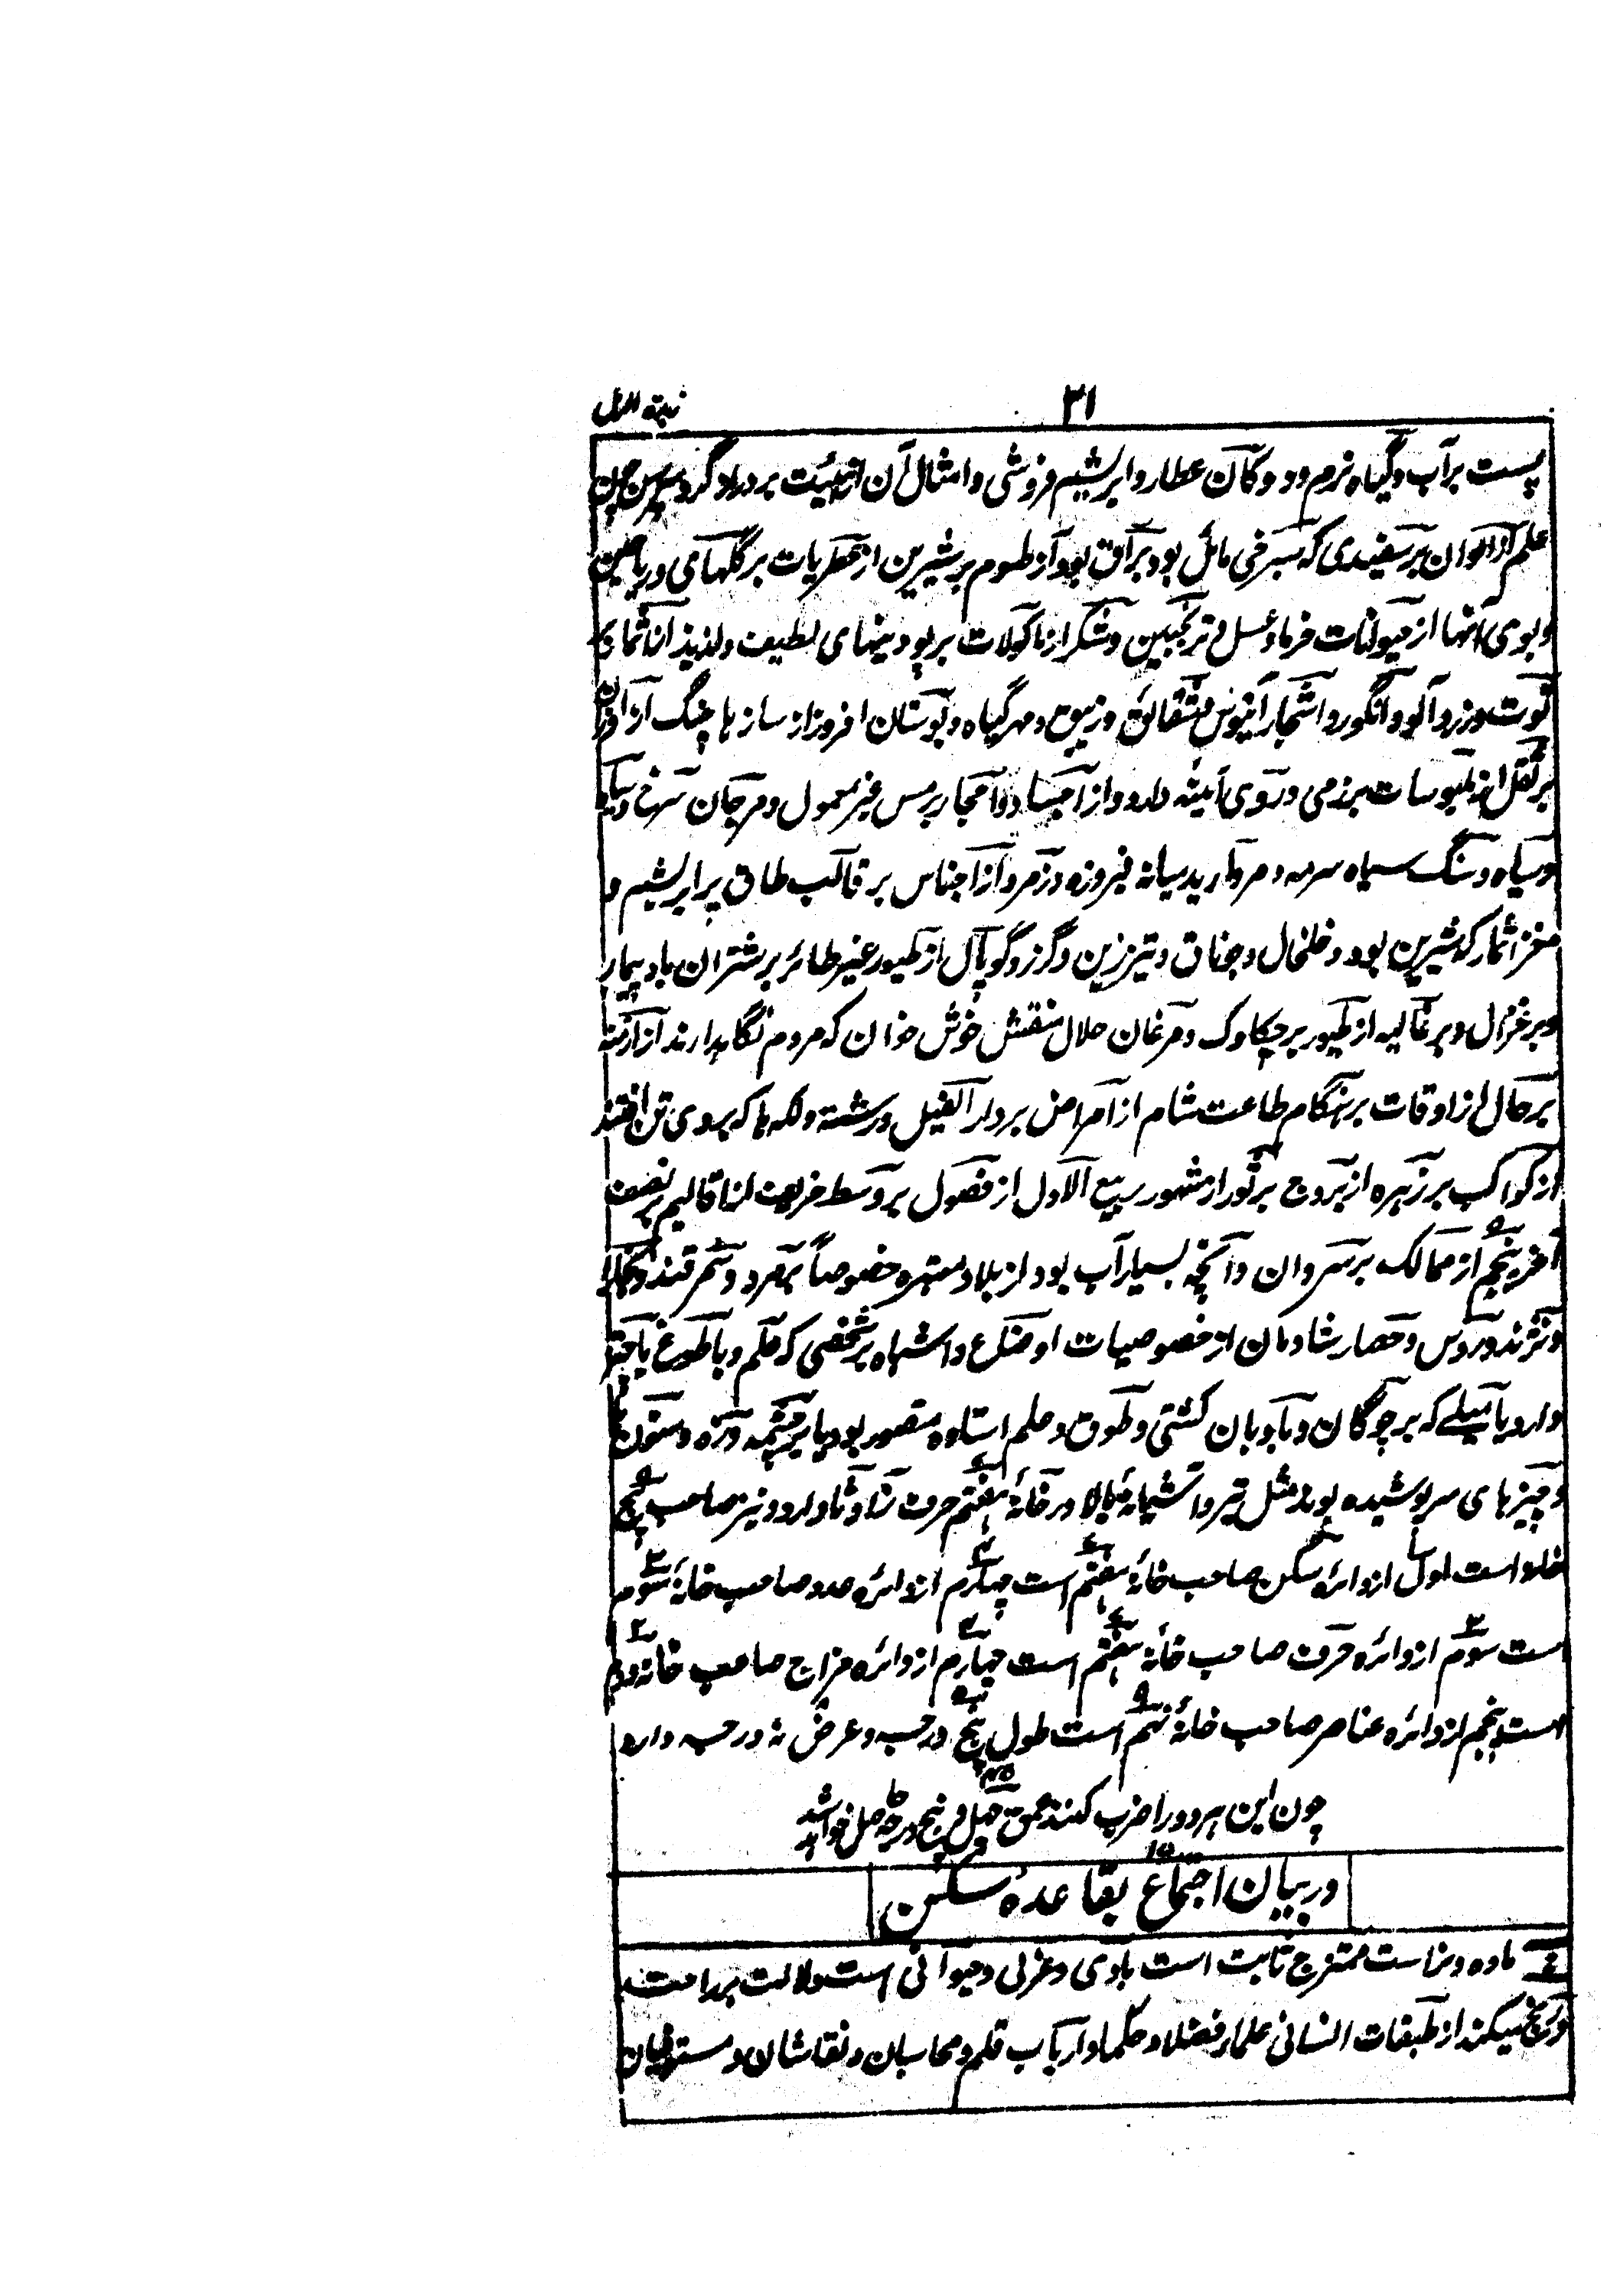 ۳۱ زبدة الرمل
پست برآب و گیاه نرم و دوکان عطار و ابریشم فروشی و امثال آن از هیئت بر دراز گرد سرین چون
علم از الوان بر سفیدی که بسرخی مائل بود براق بود از طعوم بر شیرین از عطریات بر گلهای و ریاحین
و بوی آنها از حیوانات خرما و عسل و ترنجبین و شکر از ماکولات بر پودینهای لطیف و لذیذ از اثمار بر
توت و زردآلو و انگور و اشجار آبنوس و شقائق و زیبق و مهر گیاه و بوستان افروز از سازها چنگ از اوزان
بر ثقل از ملبوسات بر زمی و روی آئینه دارد و از اجساد و احجار بر مس غیر معمول و مرجان سرخ و سیاه
و سیاه و سنگ سیاه سرمه و مروارید میانه فیروزه و زمرد از اجناس بر قالب طاق بر ابریشم و
مغز اثمار که شیرین بود و خلخال و جناق و تبرزین و گرز و گوپال از طیور غیر طائر بر شتران باد پیمار
و بر غزال و بر غالیه از طیور بر چکاوک و مرغان حلال منقش خوش خوان که مردم نگاهدارند از ازمنه
بر حال از اوقات بر هنگام طاعت شام از امراض بر داء الفیل و رشته و لکه ها که بروی تن افتند
از کواکب بر زهره از بروج بر ثور از شهور ربیع الاول از فصول بر وسط خریف از اقالیم بر نصف
آخر پنجم از ممالک بر سروان و آنچه بسیار آب بود از بلاد معتبره خصوصاً بر مرد و سمرقند و بخارا
و حصار شادمان از خصوصیات اوضاع و اشباه بر شخصی که علم و یا طوغ یا
دارد یا میلے که بر چوگان و بادبان کشتی و طوق و علم استاده متصور بود یا بر چشمه و زه و ستون
و چیزهای سرپوشیده بود مثل تیر و آشیانه در خانۀ هفتم حرف دارد و نیز صاحب پنج
خانه است اول از دائره سکن صاحب خانۀ هفتم است چهارم از دائره عدد صاحب خانۀ سوم
است سوم از دائره حرف صاحب خانۀ هفتم است چهارم از دائره مزاج صاحب خانۀ دوم
است پنجم از دائره عناصر صاحب خانۀ نهم است طول پنج درجه و عرض نه درجه دارد
چون این هر دو را ضرب کنند عمق چهل و پنج درجه حاصل خواهد شد
در بیان اجتماع بقاعدهٔ سکن
ماده و نر است ممتزج ثابت است بادی و غربی و حیوانی است دلالت بر راحت
و رنج میکند از طبقات انسانی علماء فضلا و حکما و ارباب قلم و محاسبان و نقاشان و مستوفیان